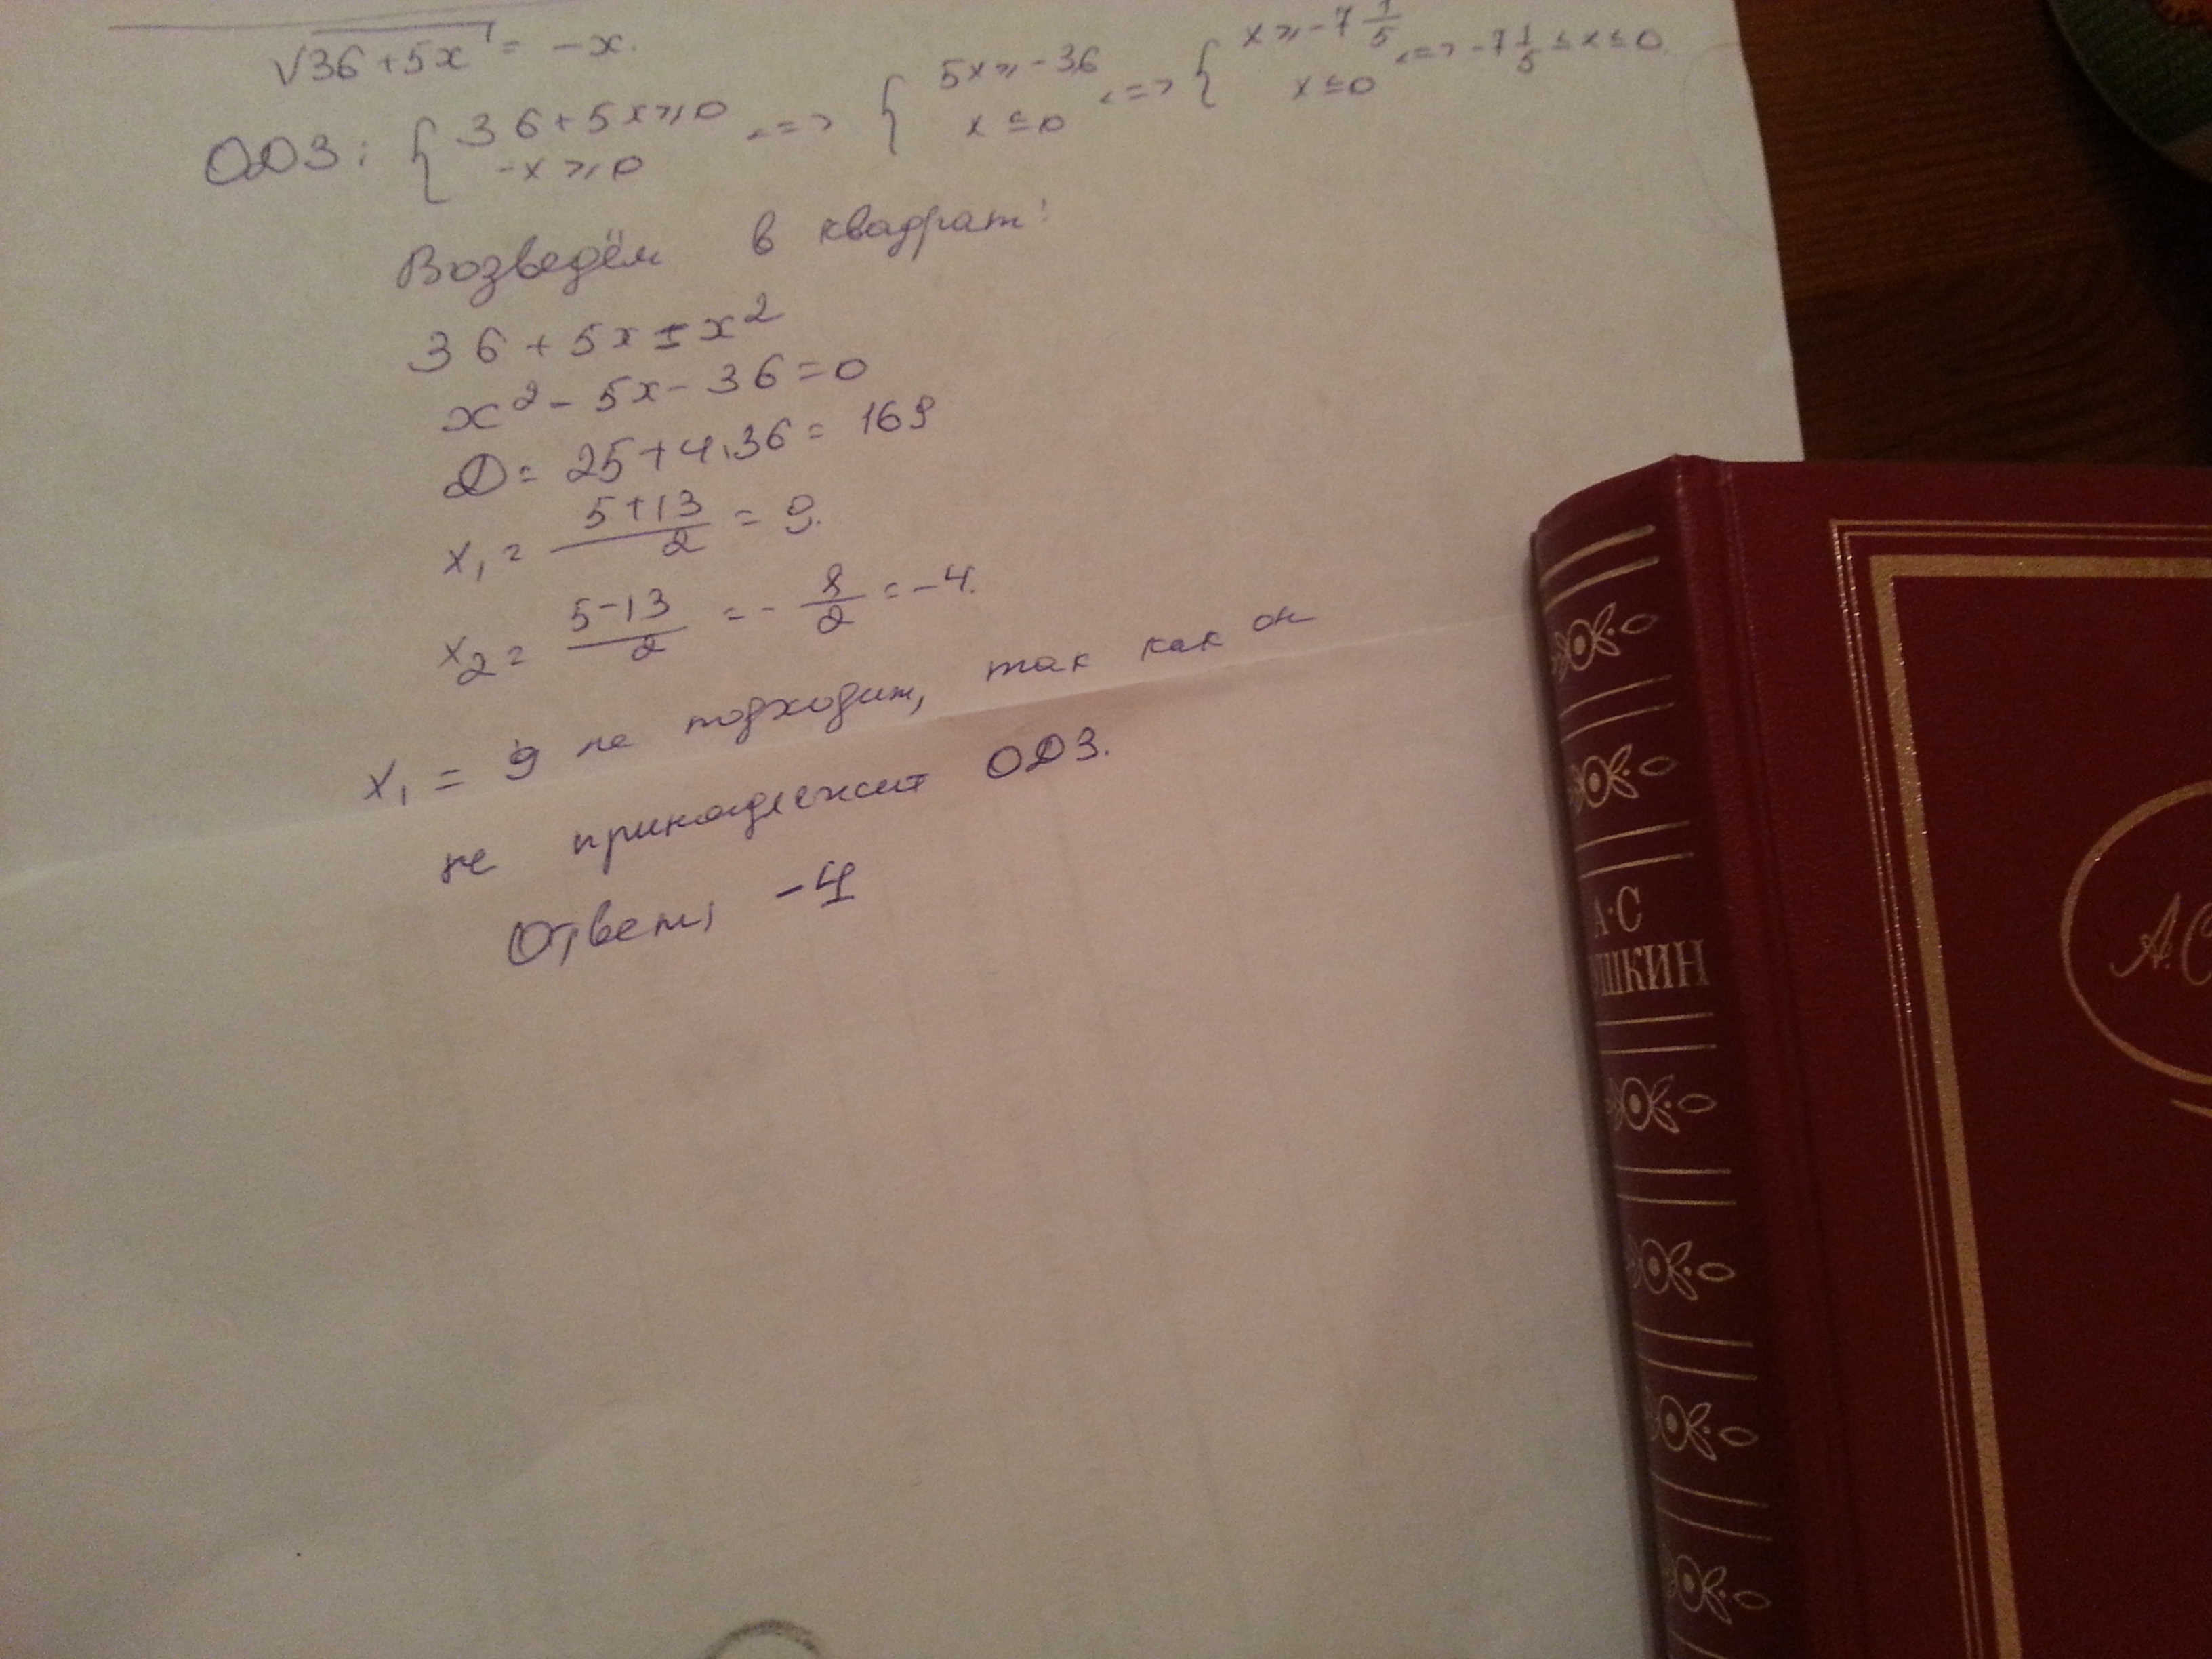 √36+5x = -x.
ОДЗ: { 36+5x⩾0 -x⩾0 <=> { 5x⩾-36 x≤0 <=> { x⩾-7 1/5 x≤0 <=> -7 1/5 ≤ x ≤ 0.
Возведём в квадрат:
36+5x=x²
x²-5x-36=0
D= 25+4·36= 169
x₁= (5+13)/2 = 9.
x₂= (5-13)/2 = -8/2 = -4.
x₁ = 9 не подходит, так как он
не принадлежит ОДЗ.
Ответ: -4
А·С
ШКИН
А.С